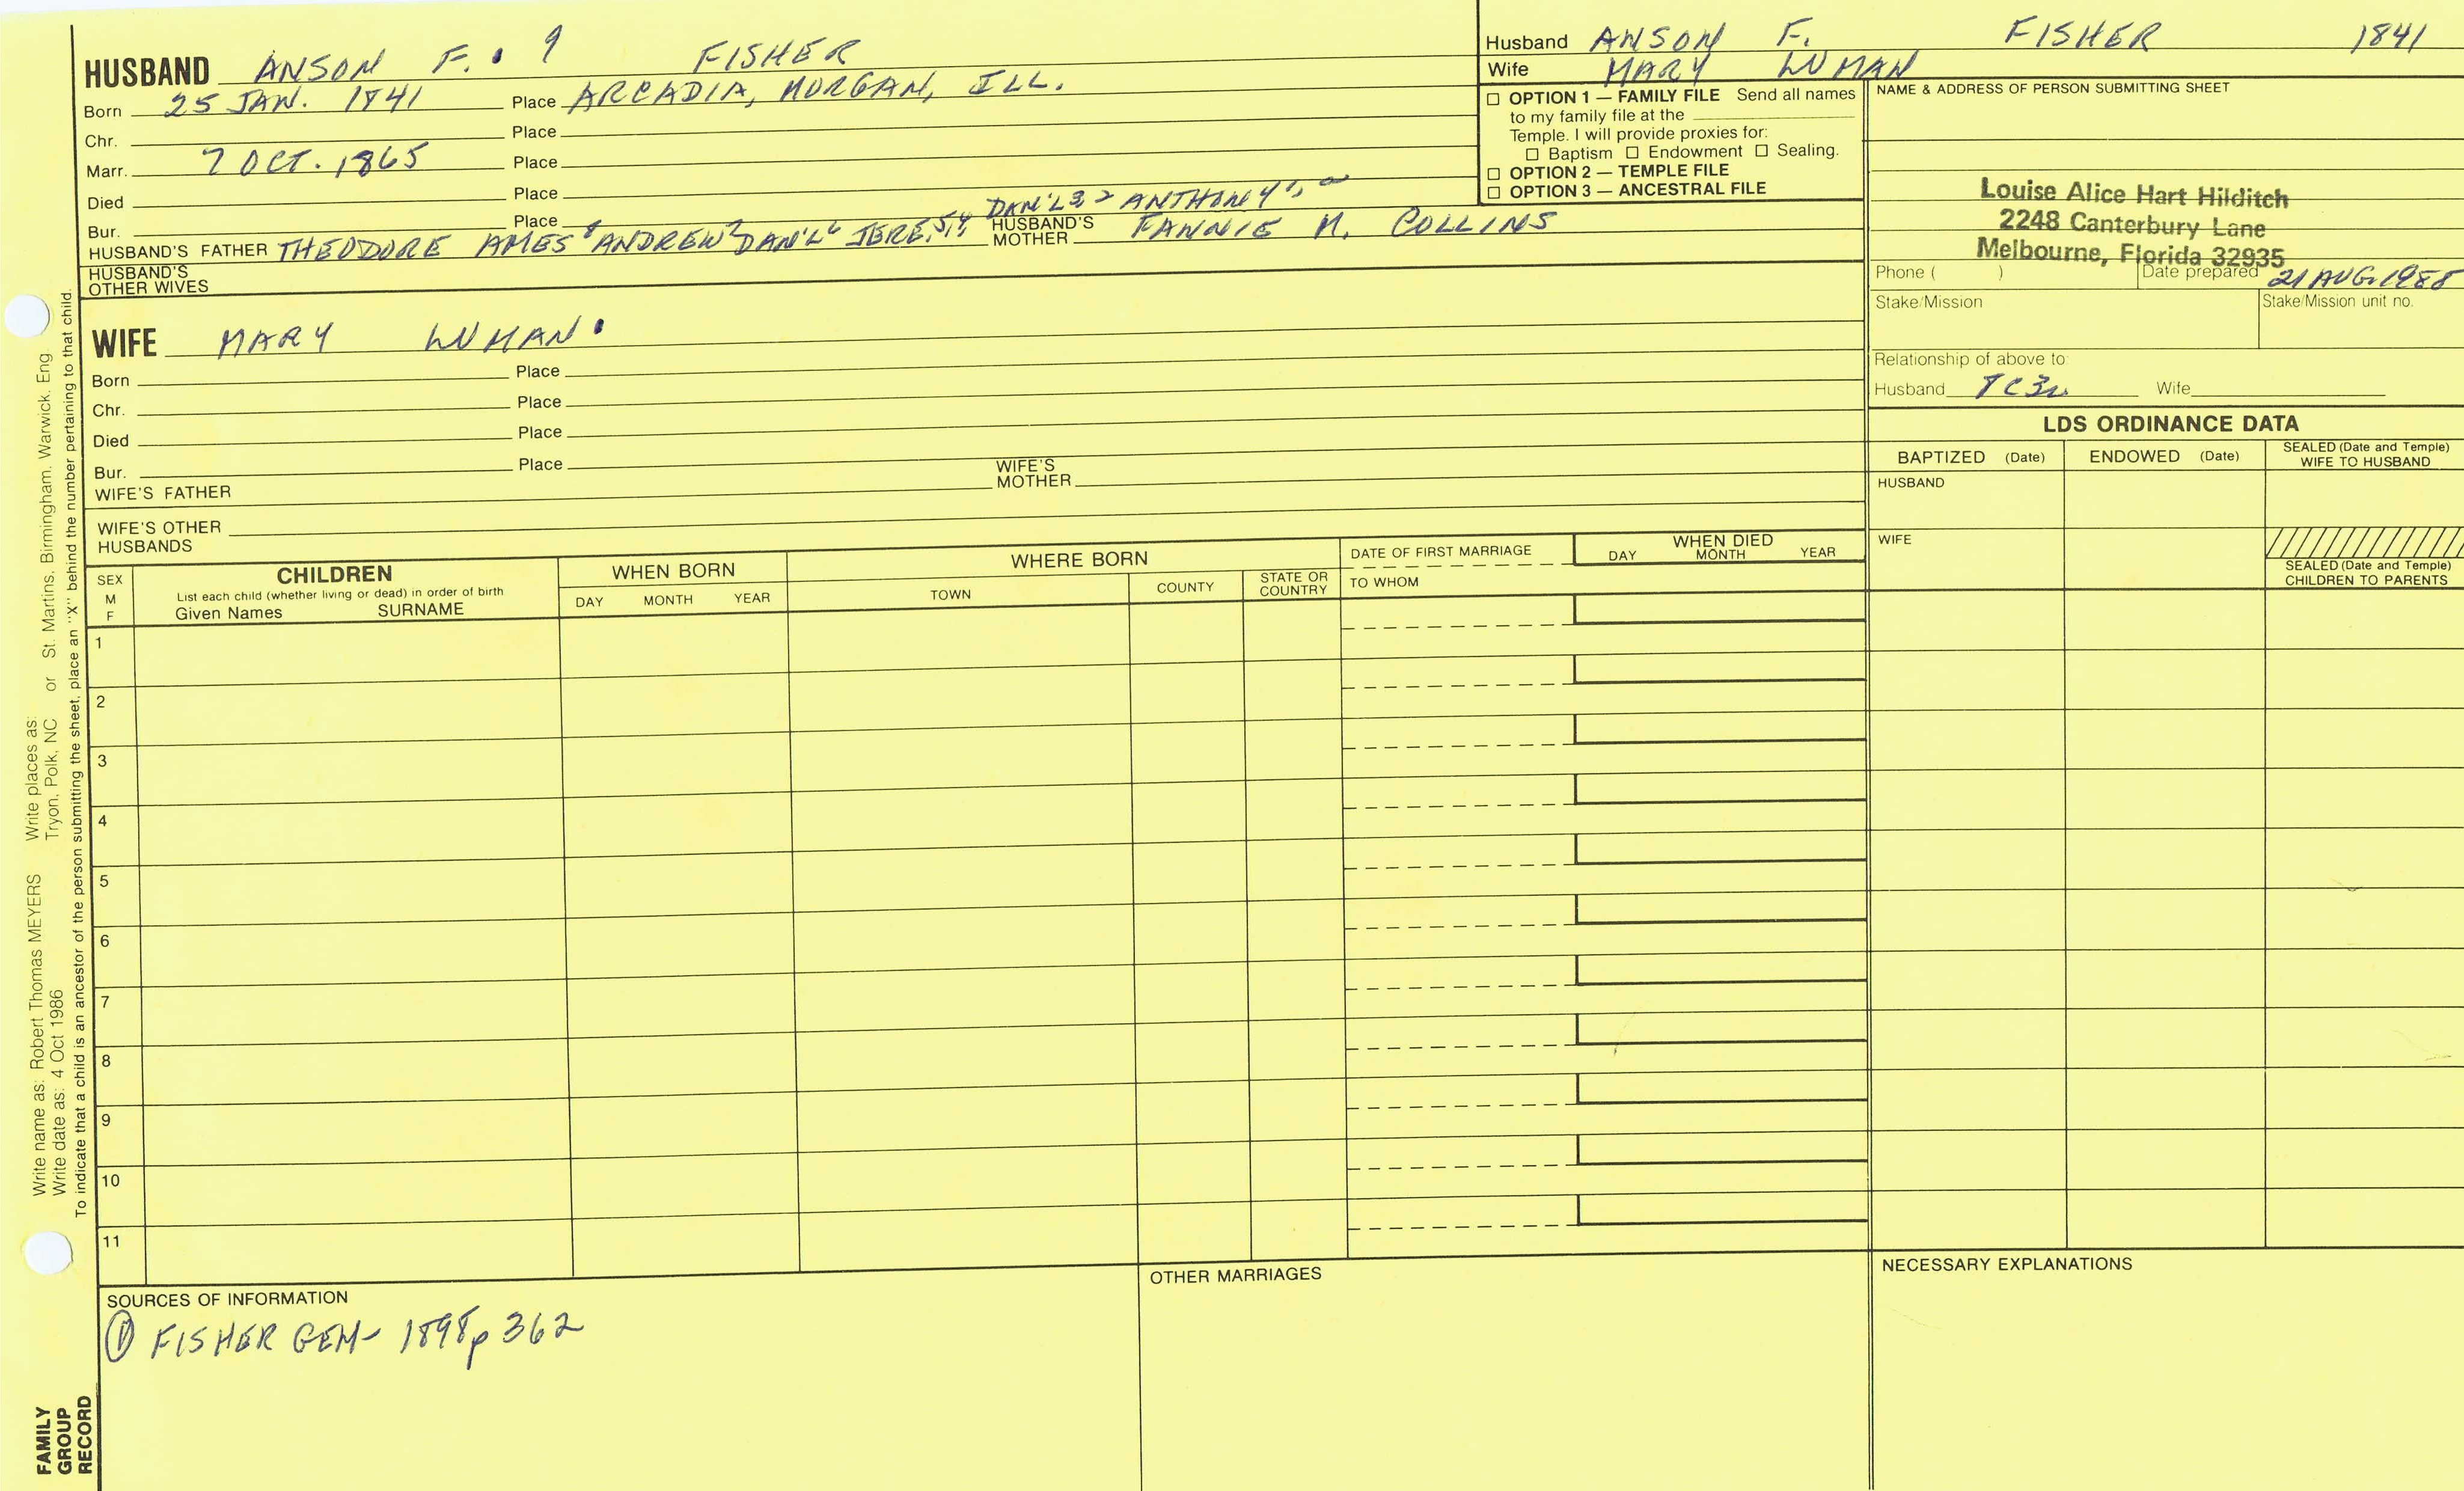 HUSBAND ANSON F. 9 FISHER
Born 25 JAN. 1841 Place ARCADIA, MORGAN, ILL.
Chr. Place
Marr. 7 OCT. 1865 Place
Died Place
Bur. Place
DAN'L 3 2 ANTHONY 1
HUSBAND'S FATHER THEODORE AMES 8 ANDREW 7 DAN'L 6 JERE. 5, 4 HUSBAND'S MOTHER FANNIE M. COLLINS
HUSBAND'S OTHER WIVES
WIFE MARY LUMAN
Born Place
Chr. Place
Died Place
Bur. Place
WIFE'S FATHER WIFE'S MOTHER
WIFE'S OTHER HUSBANDS
Husband ANSON F. FISHER 1841
Wife MARY LUMAN
☐ OPTION 1 — FAMILY FILE Send all names
to my family file at the
Temple. I will provide proxies for:
☐ Baptism ☐ Endowment ☐ Sealing.
☐ OPTION 2 — TEMPLE FILE
☐ OPTION 3 — ANCESTRAL FILE
NAME & ADDRESS OF PERSON SUBMITTING SHEET
Louise Alice Hart Hilditch
2248 Canterbury Lane
Melbourne, Florida 32935
Phone ( ) Date prepared 21 AUG. 1988
Stake/Mission Stake/Mission unit no.
Relationship of above to:
Husband Wife
LDS ORDINANCE DATA
BAPTIZED (Date) ENDOWED (Date) SEALED (Date and Temple) WIFE TO HUSBAND
HUSBAND
WIFE
SEALED (Date and Temple)
CHILDREN TO PARENTS
SEX M F
CHILDREN
List each child (whether living or dead) in order of birth
Given Names SURNAME
WHEN BORN
DAY MONTH YEAR
WHERE BORN
TOWN COUNTY STATE OR COUNTRY
DATE OF FIRST MARRIAGE
TO WHOM
WHEN DIED
DAY MONTH YEAR
1
2
3
4
5
6
7
8
9
10
11
SOURCES OF INFORMATION
① FISHER GEN- 1898 p 362
OTHER MARRIAGES
NECESSARY EXPLANATIONS
Write name as: Robert Thomas MEYERS Write places as: St. Martins, Birmingham, Warwick, Eng.
Write date as: 4 Oct 1986 Tryon, Polk, NC or
To indicate that a child is an ancestor of the person submitting the sheet, place an "X" behind the number pertaining to that child.
FAMILY
GROUP
RECORD